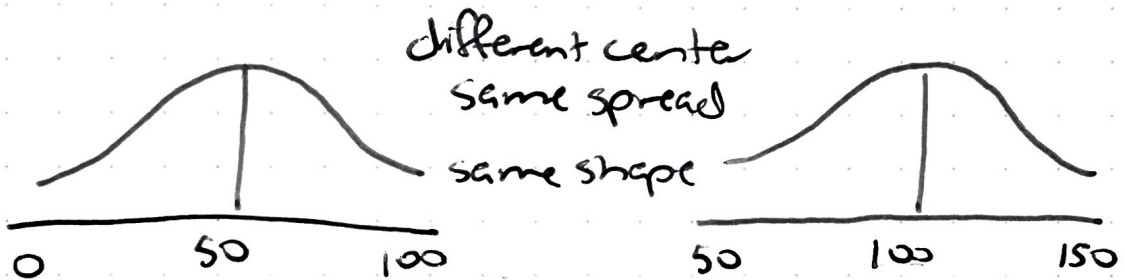 different center
same spread
same shape
0 50 100
50 100 150